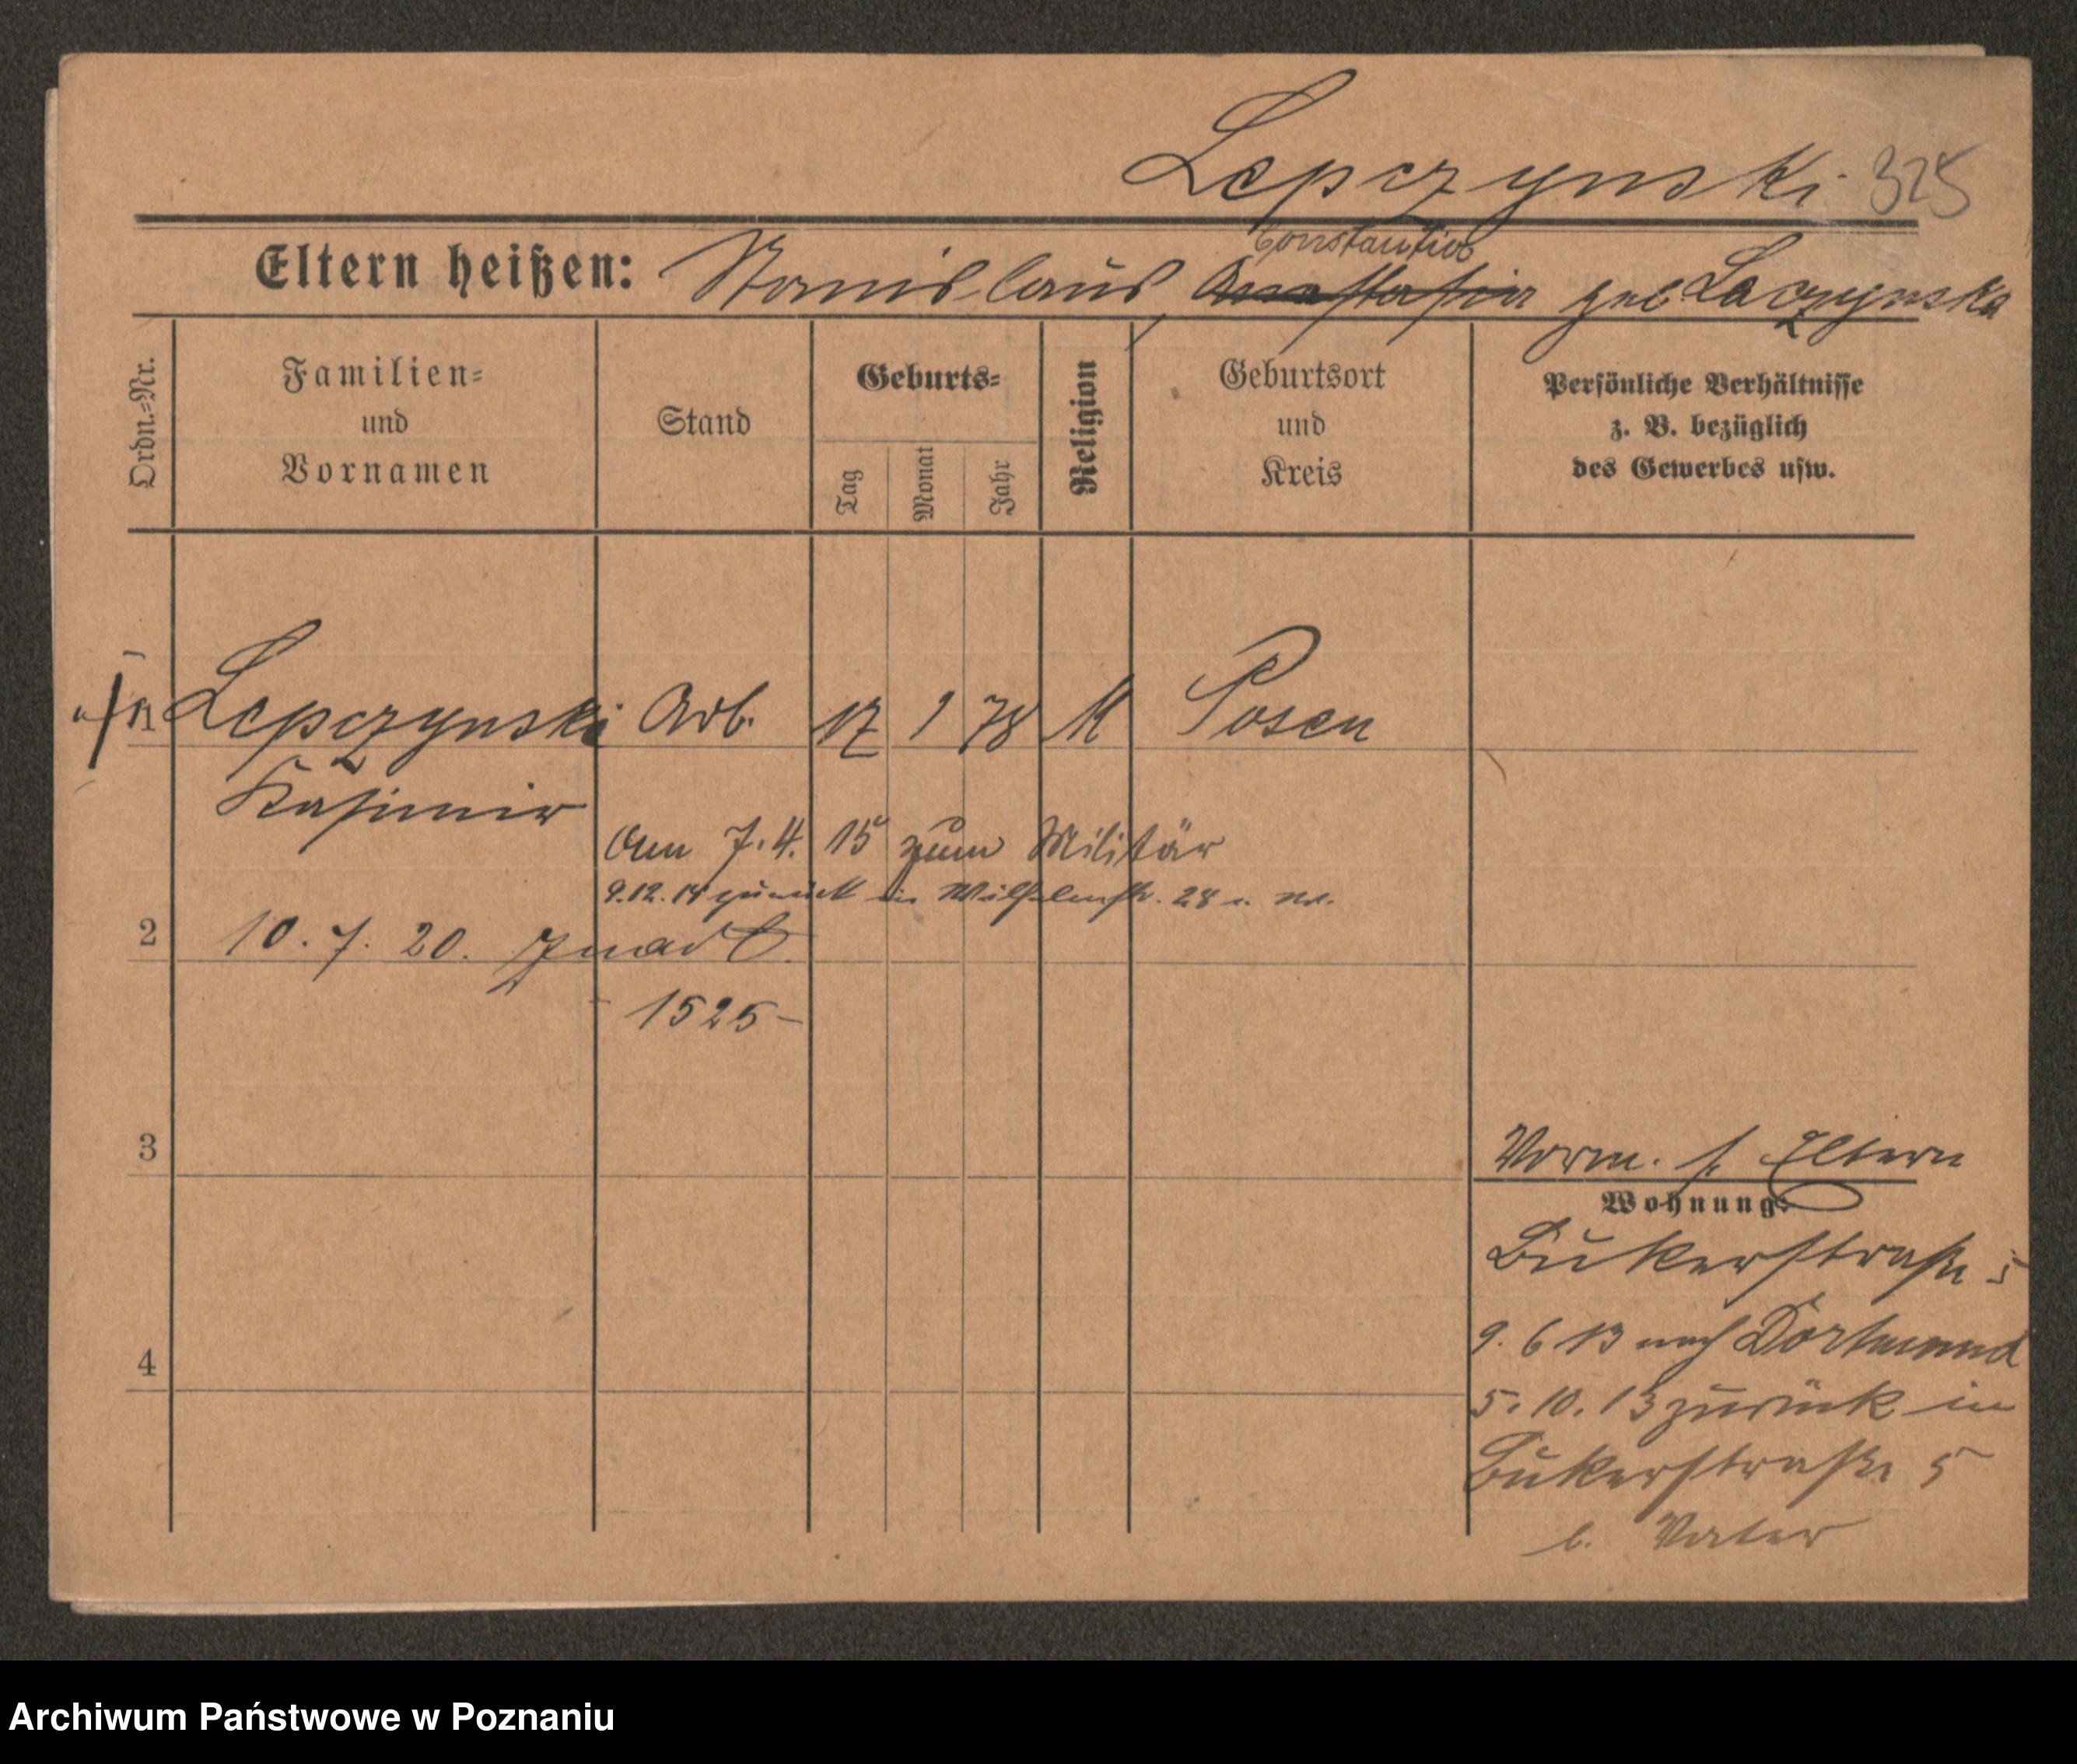 Lepczynski 325
Constantia
Eltern heißen: Stanislaus, Anastasia geb. Laczynska
Ordn.=Nr.
Familien=
und
Vornamen
Stand
Geburts=
Tag
Monat
Jahr
Religion
Geburtsort
und
Kreis
Persönliche Verhältnisse
z. B. bezüglich
des Gewerbes usw.
1 Lepczynski Arb. 17 1 78 K Posen
Kasimir
Am 7.4. 15 zum Militär
9.12. 14 zurück in Wilhelmstr. 28
2 10. 7. 20.
- 1525 -
3
Vorm. s. Eltern
Wohnung:
Bukerstraße 5
9. 6 13 nach Dortmund
4
5. 10. 13 zurück in
Bukerstraße 5
b. Vater
Archiwum Państwowe w Poznaniu